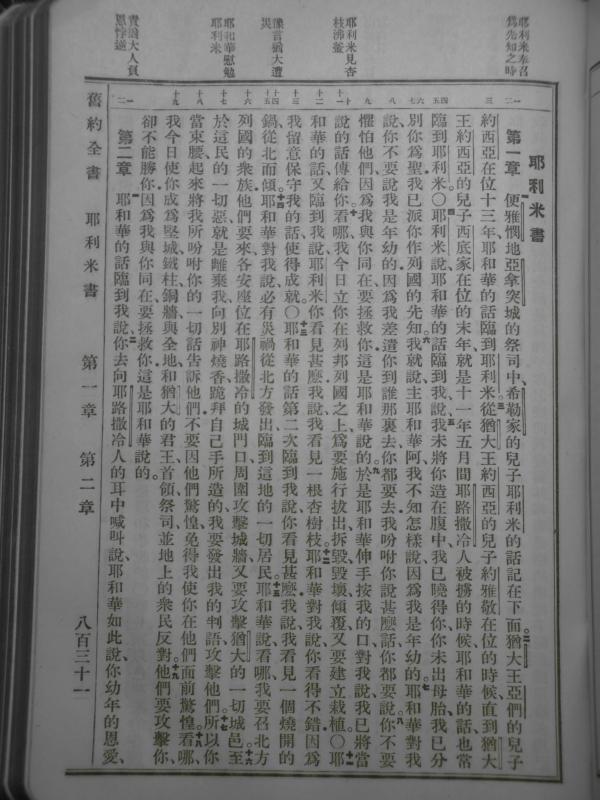 耶利米奉召
爲先知之時
耶利米見杏
枝沸釜
豫言猶大遭
災
耶和華慰勉
耶利米
責猶大人負
恩悖逆
耶利米書
第一章 便雅憫地亞拿突城的祭司中希勒家的兒子耶利米的話記在下面、二猶大王亞們的兒子
約西亞在位十三年、耶和華的話臨到耶利米。三從猶大王約西亞的兒子約雅敬在位的時候、直到猶大
王約西亞的兒子西底家在位的末年、就是十一年五月間耶路撒冷人被擄的時候、耶和華的話也常
臨到耶利米。〇四耶利米說、耶和華的話臨到我說、五我未將你造在腹中、我已曉得你、你未出母胎、我已分
別你爲聖、我已派你作列國的先知。六我就說、主耶和華阿、我不知怎樣說、因爲我是年幼的。七耶和華對我
說、你不要說我是年幼的、因爲我差遣你到誰那裏去、你都要去、我吩咐你說甚麼話、你都要說。八你不要
懼怕他們、因爲我與你同在、要拯救你、這是耶和華說的。九於是耶和華伸手按我的口、對我說、我已將當
說的話傳給你。十看哪、我今日立你在列邦列國之上、爲要施行拔出、拆毀、毀壞、傾覆、又要建立栽植。〇十一耶
和華的話又臨到我說、耶利米、你看見甚麼、我說、我看見一根杏樹枝。十二耶和華對我說、你看得不錯、因爲
我留意保守我的話、使得成就。〇十三耶和華的話第二次臨到我說、你看見甚麼、我說、我看見一個燒開的
鍋、從北而傾。十四耶和華對我說、必有災禍從北方發出、臨到這地的一切居民。十五耶和華說、看哪、我要召北方
列國的衆族、他們要來各安座位在耶路撒冷的城門口、周圍攻擊城牆、又要攻擊猶大的一切城邑。十六至
於這民的一切惡、就是離棄我、向別神燒香、跪拜自己手所造的、我要發出我的判語、攻擊他們。十七所以你
當束腰、起來將我所吩咐你的一切話告訴他們、不要因他們驚惶、免得我使你在他們面前驚惶。十八看哪、
我今日使你成爲堅城、鐵柱、銅牆、與全地和猶大的君王、首領、祭司、並地上的衆民反對。十九他們要攻擊你、
卻不能勝你、因爲我與你同在、要拯救你、這是耶和華說的。
第二章 耶和華的話臨到我說、二你去向耶路撒冷人的耳中喊叫說、耶和華如此說、你幼年的恩愛、
舊約全書 耶利米書 第一章 第二章 八百三十一